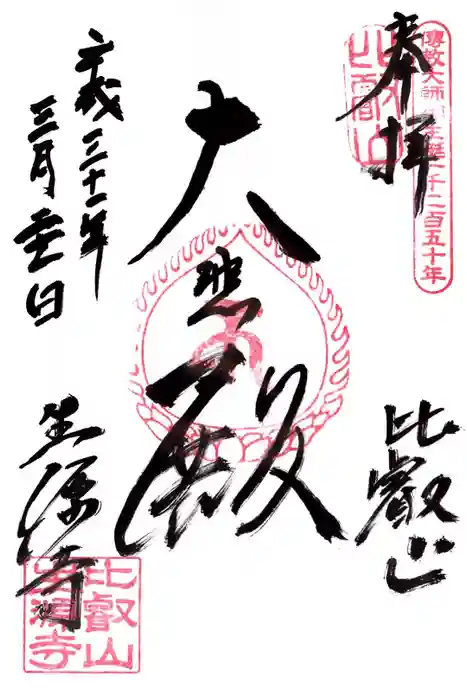 傳教大師御生誕一千二百五十年
比叡山
奉拝
比叡山
大悲殿
平成三十一年
三月 日
生源寺
比叡山
生源寺